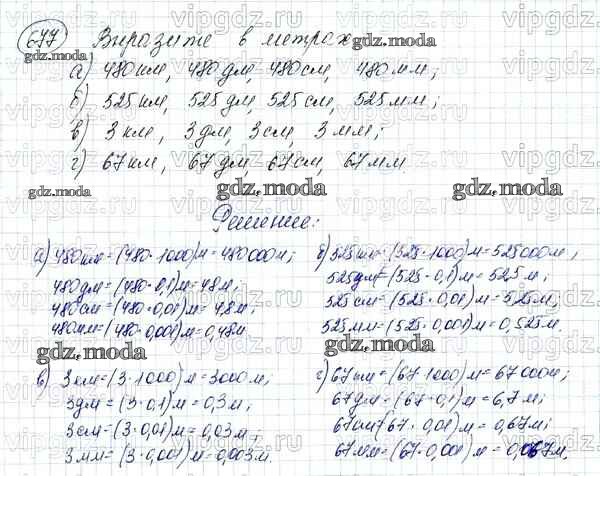 677 Выразите в метрах
а) 480 км, 480 дм, 480 см, 480 мм;
б) 525 км, 525 дм, 525 см, 525 мм;
в) 3 км, 3 дм, 3 см, 3 мм;
г) 67 км, 67 дм, 67 см, 67 мм.
Решение:
а) 480 км = (480·1000) м = 480000 м;
480 дм = (480·0,1) м = 48 м;
480 см = (480·0,01) м = 4,8 м;
480 мм = (480·0,001) м = 0,48 м.
б) 525 км = (525·1000) м = 525000 м;
525 дм = (525·0,1) м = 52,5 м;
525 см = (525·0,01) м = 5,25 м,
525 мм = (525·0,001) м = 0,525 м.
в) 3 км = (3·1000) м = 3000 м;
3 дм = (3·0,1) м = 0,3 м;
3 см = (3·0,01) м = 0,03 м;
3 мм = (3·0,001) м = 0,003 м.
г) 67 км = (67·1000) м = 67000 м;
67 дм = (67·0,1) м = 6,7 м;
67 см = (67·0,01) м = 0,67 м;
67 мм = (67·0,001) м = 0,067 м.
gdz.moda
gdz.moda
gdz.moda
gdz.moda
gdz.moda
gdz.moda
gdz.moda
gdz.moda
gdz.moda